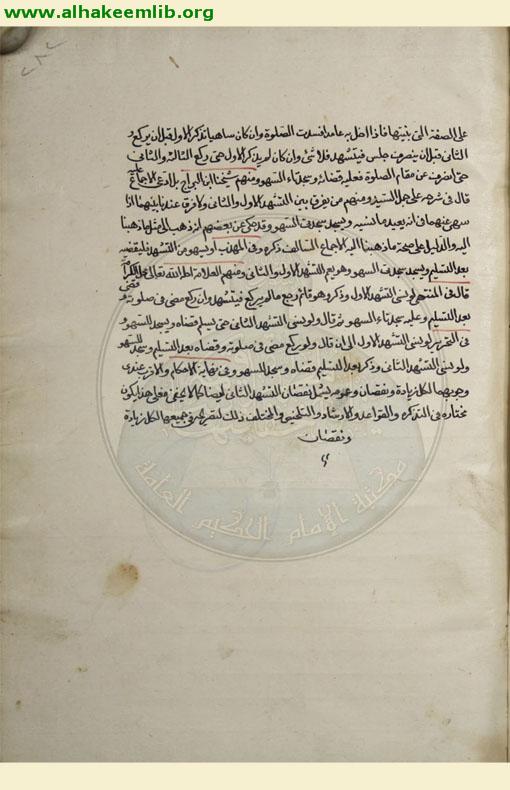 www.alhakeemlib.org
على الصفة التي بنيتها فاذا اخل به عامدا فسدت الصلوة وان كان ساهيا وذكر الاول قبل ان يركع و
الثاني قبل ان ينصرف جلس فيتشهد فلا شئ وان كان لم يذكر الاول حتى ركع الثالثة والثاني
حتى انصرف عن مقام الصلوة فعليه قضائه وسجدتا السهو ومنهم شيخنا ابن البراج بل ادعى الاجماع عليه
قال في شرحه على جمل السيد ومنهم من يفرق بين التشهد الاول والثاني ولا فرق عندنا بينهما اذا
سهى عنهما في انه يعيد ما نسيه ويسجد سجدتي السهو وقد حكى عن بعضهم انه ذهب الى مثل ما ذهبنا
اليه والدليل على صحة ما ذهبنا اليه الاجماع السالف ذكره وفي المهذب او يسهو من التشهد فليقضه
بعد التسليم ويسجد سجدتي السهو وهو يعم التشهد الاول والثاني ومنهم العلامة اطال الله تعالى
قال في المنتهى لو نسي التشهد الاول وذكر وهو قائم رجع ما لم يركع فيتشهد وان ركع مضى في صلوته وقضى
بعد التسليم وعليه سجدتا السهو ثم قال ولو نسي التشهد الثاني حتى يسلم قضاه ويسجد للسهو و
في التحرير لو نسي التشهد الاول الى ان قال ولو ركع مضى في صلوته وقضاه بعد التسليم وسجد للسهو
ولو نسي التشهد الثاني وذكر بعد التسليم قضاه وسجد للسهو وفي نهاية الاحكام والاقرب عندي
وجوبهما لكل زيادة ونقصان وعمومه يشمل نقصان التشهد الثاني ايضا كما لا يخفى فعلى هذا يكون
مختاره في التذكرة والقواعد والارشاد والتلخيص والمختلف ذلك لتصريحه في جميعها لكل زيادة
ونقصان
مكتبة الامام الحكيم العامة